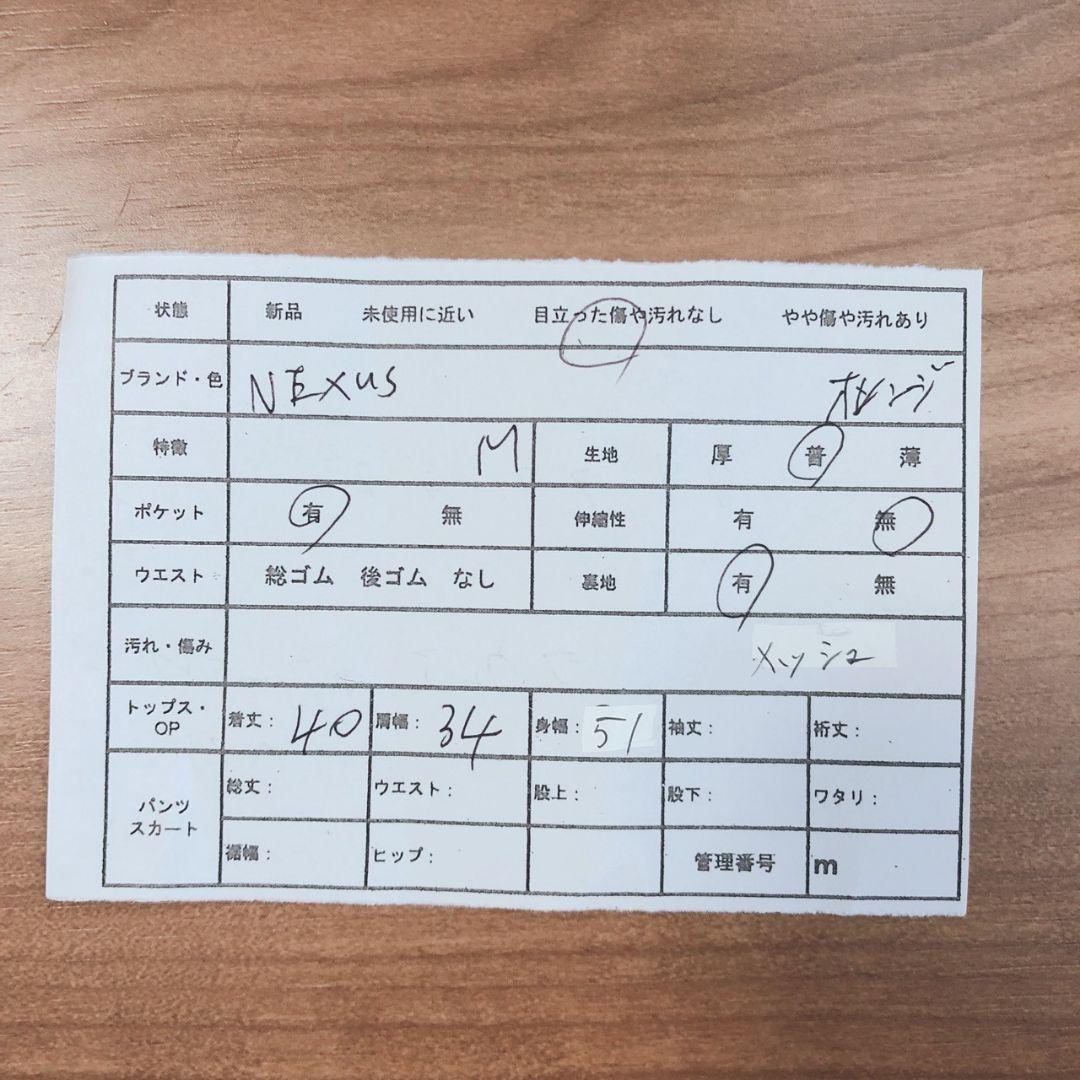 状態 新品 未使用に近い 目立った傷や汚れなし やや傷や汚れあり
ブランド・色 NEXUS オレンジ
特徴 M 生地 厚 普 薄
ポケット 有 無 伸縮性 有 無
ウエスト 総ゴム 後ゴム なし 裏地 有 無
汚れ・傷み メッシュ
トップス・OP 着丈: 40 肩幅: 34 身幅: 51 袖丈: 裄丈:
パンツ スカート 総丈: ウエスト: 股上: 股下: ワタリ:
裾幅: ヒップ: 管理番号 m